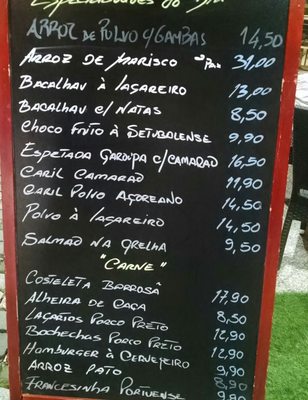 Especialidades do Dia
Arroz de Polvo c/Gambas 14,50
Arroz de Marisco 2 Pax 31,00
Bacalhau à Lagareiro 13,00
Bacalhau c/ Natas 8,50
Choco Frito à Setubalense 9,90
Espetada Garoupa c/Camarão 16,50
Caril Camarão 11,90
Caril Polvo Açoreano 14,50
Polvo à Lagareiro 14,50
Salmão na Grelha 9,50
"Carne"
Costeleta Barrosã 17,90
Alheira de Caça 8,50
Lagartos Porco Preto 12,90
Bochechas Porco Preto 12,90
Hamburger à Cervejeiro 9,90
Arroz Pato 8,90
Francesinha Portuense 9,90